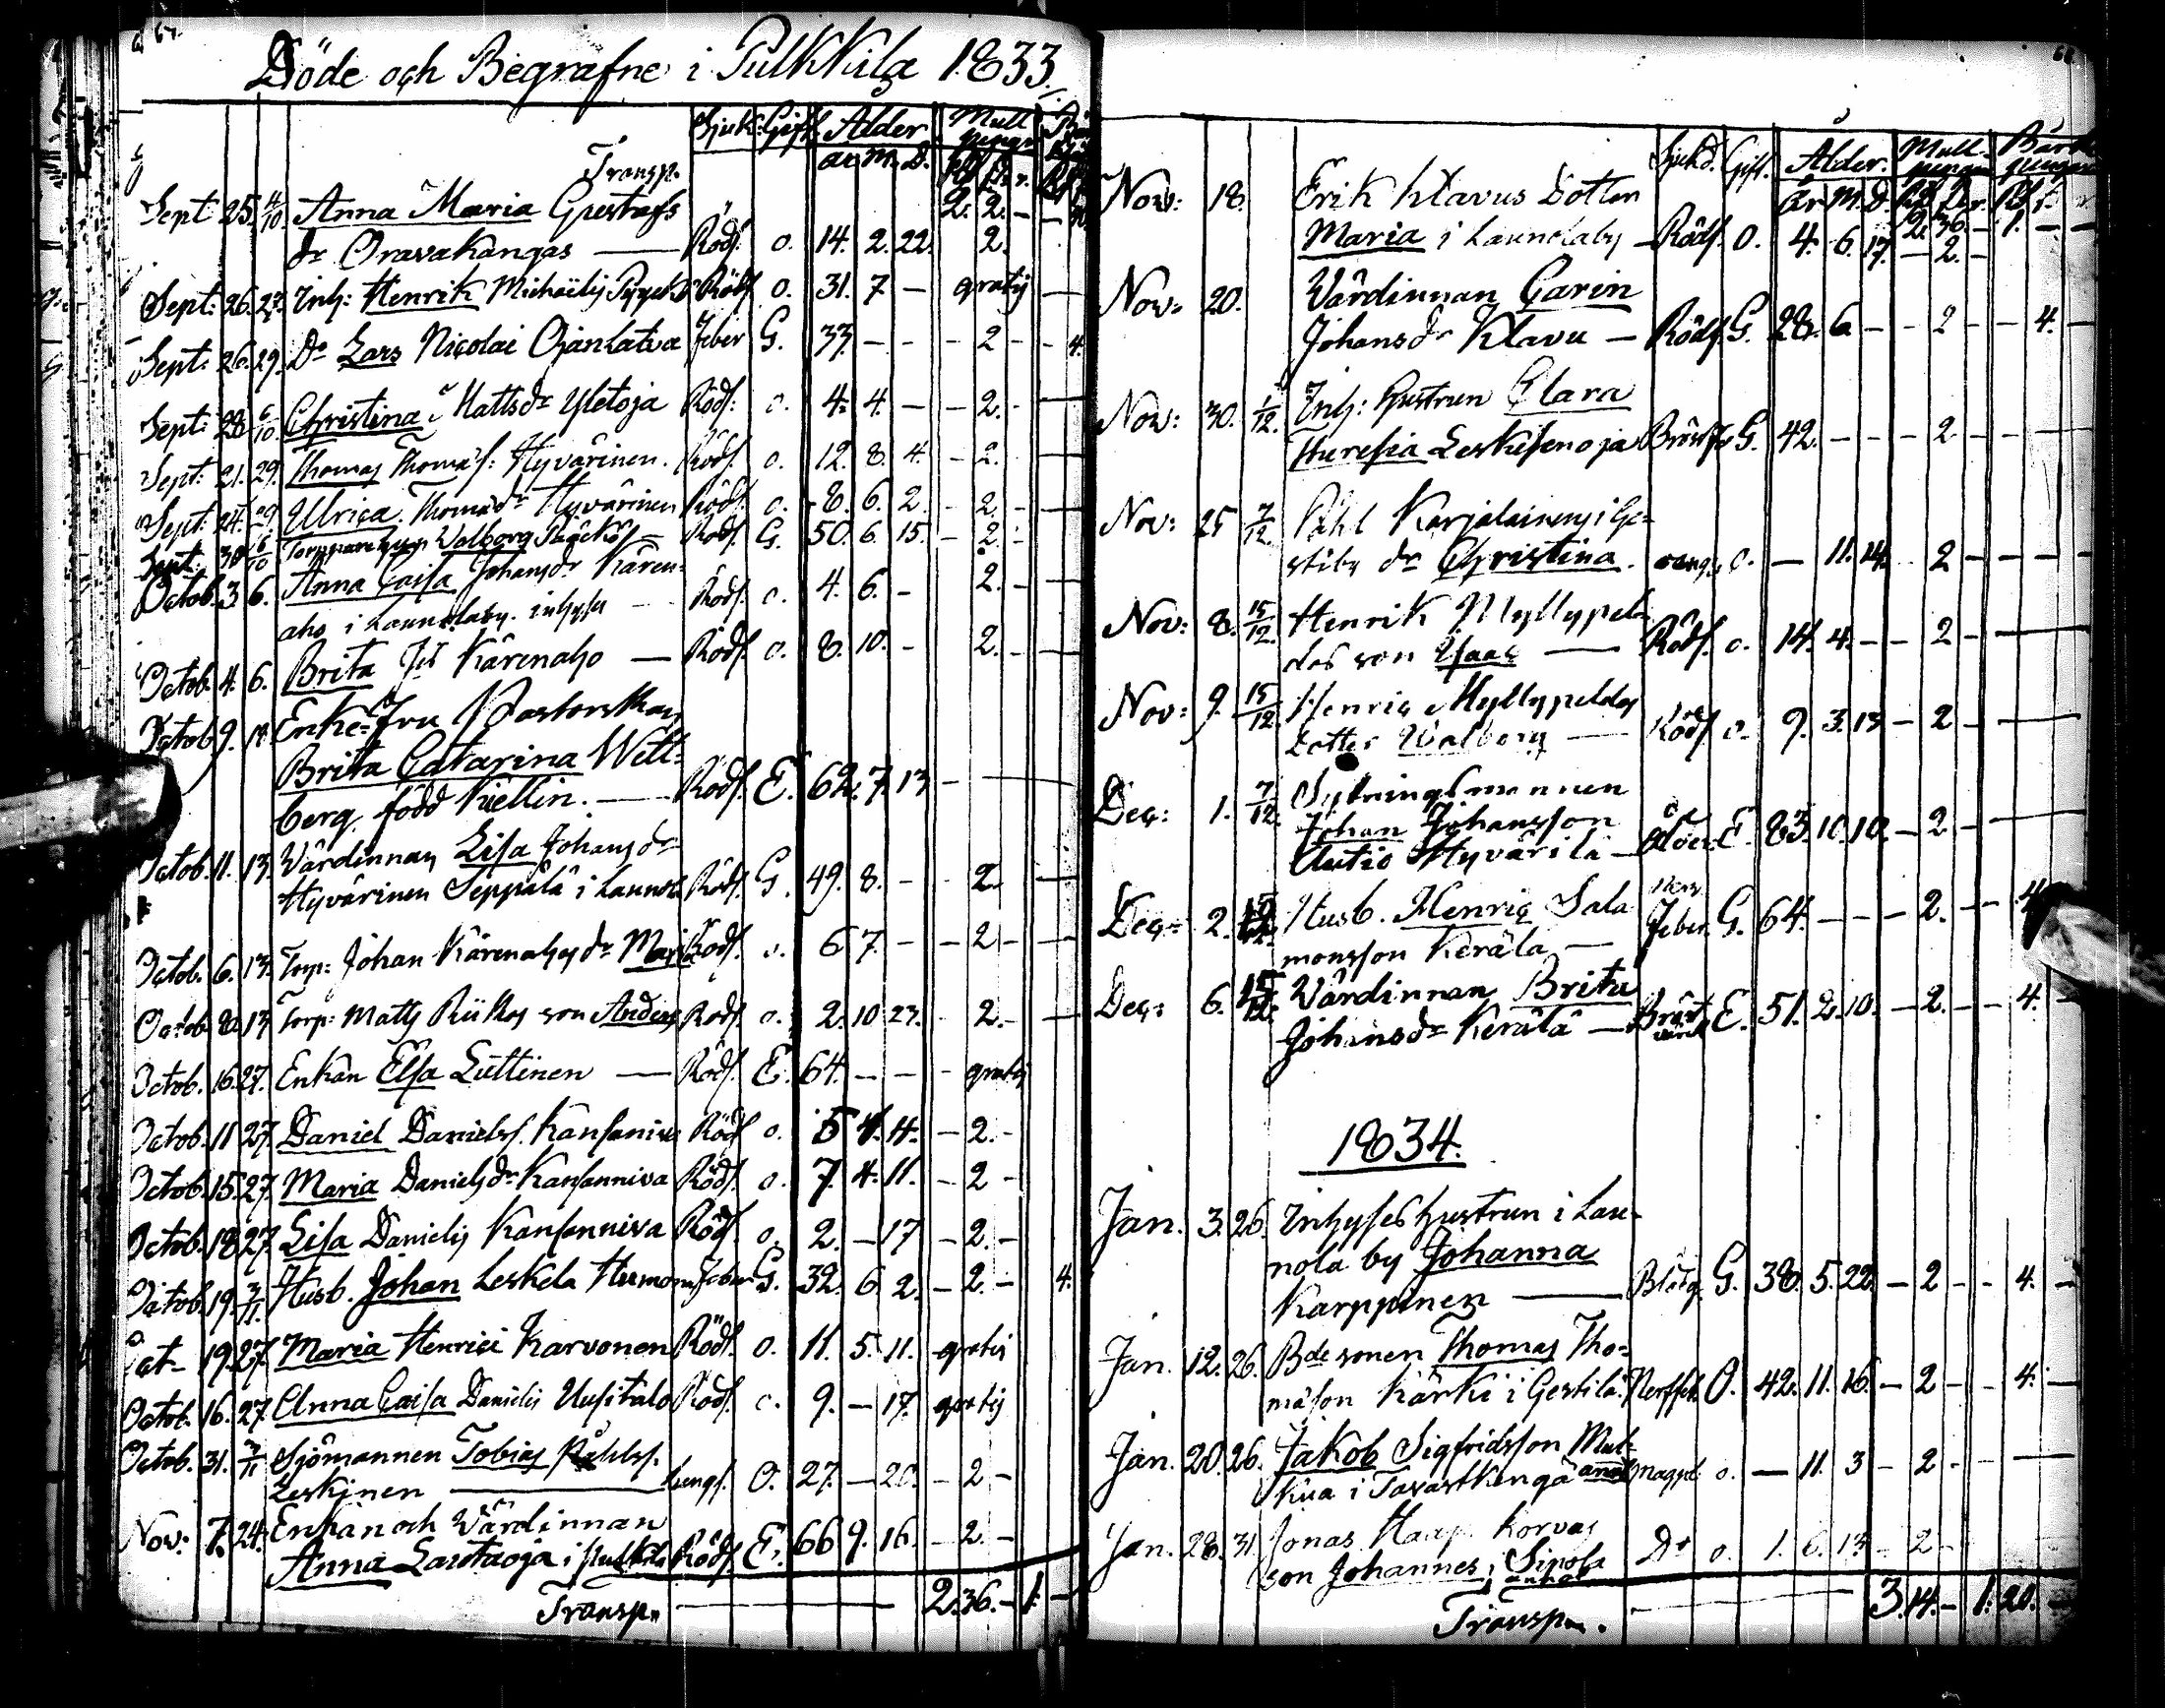 Döde och Begrafne i Pulkkila 1833.
Sjuk. Gift. Ålder Mull penga
år. M. D.
Transp. 2. 2. –
Sept. 25. 4/10. Anna Maria Gustafs
dr Oravakangas — Röds. o. 14. 2. 22. 2.
Sept: 26. 27. Inh: Henrik Michaelis Röds o. 31. 7 – gratis
Sept: 26. 29. Do Lars Nicolai Ojanlatva Feber G. 33. – – – 2 – – 4.
Sept: 28 6/10. Christina Mattsdr Yletoja Röds. o. 4. 4. – – 2. –
Sept: 21. 29. Thomas Thomæs: Hyvärinen. Röds. o. 12. 8. 4. – 2.
Sept: 24. 29 Ulrica Thomædr Hyvärinen Röds. o. 8. 6. 2. – 2. –
Sept. 30 6/10 Walborg Röds. G. 50. 6. 15. – 2.
Octob. 3. 6. Anna Caisa Johansdr Kären-
aho i Launolaby. inhyses Röds. o. 4. 6. – 2. –
Octob. 4. 6. Brita Kärenaho — Röds. o. 8. 10. – 2. –
Octob. 9. Enke-Fru Pastorskan
Brita Catarina Wett-
berg, född Kiellin. — Röds. E. 62. 7. 13 –
Octob. 11. 13. Värdinnan Lisa Johansdr
Hyvärinen Seppälä i Launola Röds. G. 49. 8. – – 2.
Octob. 6. 13. Torp: Johan Kärenahos dr Maria Röds. o. 6 7. – – 2 –
Octob. 8. 13 Torp: Matts Riikos son Anders Röds. o. 2. 10 23. – 2. –
Octob. 16. 27. Enkan Elsa Luttinen — Röds. E. 64. – – – gratis
Octob. 11 27. Daniel Daniels. Kansaniva Röds o. 5 4. 4. – 2. –
Octob. 15. 27. Maria Danielsdr Kansanniva Röds. o. 7. 4. 11. – 2 –
Octob. 18 27. Lisa Danielis Kansanniva Röds. o. 2. – 17 – 2. –
Octob. 19. 3/11. Husb. Johan Leskelä Feber G. 32. 6 2. – 2. – 4.
Oct– 19. 27. Maria Henrici Karvonen Röds. o. 11. 5. 11. gratis
Octob. 16. 27. Anna Caisa Danielis Uusitalo Röds. o. 9. – 17. gratis
Octob. 31. 3/11 Sjömannen Tobias Påhls.
Leskinen — Lungs. O. 27. – 20. – 2 –
Nov: 7. 24. Enkan och Värdinnan
Anna Lautaoja i Röds. E. 66 9. 16. – 2. –
Transp. — 2. 36. – 1. –
Sjukd. Gift. Ålder. Mull- penga
År. M. D.
2. 36. – 1. –
Nov: 18. Erik Klavus Dotter
Maria i Launolaby – Röds. O. 4. 6. 17. – 2. –
Nov: 20. Värdinnan Carin
Johansdr Klavu – Röds. G. 28. 6 – – 2 – – 4. –
Nov: 30. 1/12. Inh: Hustrun Clara
Theresia Leskelenoja G. 42. – – – 2 – –
Nov: 25 7/12. Påhl Karjalainens i Ge-
stiby dr Christina. o. – 11. 14. 2 –
Nov: 8. 15/12. Henrik Myllypel-
dos son Isaac — Röds. o. 14. 4. – – 2 –
Nov: 9. 15/12. Henric Myllypeldos
Dotter Walborg — Röds o. 9. 3. 13 – 2 –
Dec: 1. 7/12. Sytningsmannen
Johan Johansson
Autio Hyvärilä – E. 83. 10. 10. – 2 –
Dec: 2. Husb. Henric Salo-
monsson Kerälä — Feber. G. 64. – – – 2. – – 4
Dec: 6. 15/12. Värdinnan Brita
Johansdr Kerälä – E. 51. 2. 10. – 2. – – 4. –
1834.
Jan. 3. 26. Inhyses hustrun i Lau-
nola by Johanna
Karppinen — G. 38. 5. 22. – 2 – – 4. –
Jan. 12. 26. Bde sonen Thomas Tho-
mæson Kärki i Gestilä. O. 42. 11. 16. – 2 – – 4. –
Jan. 20. 26. Jakob Sigfridsson Mul-
kua i Tavastkenga o. – 11. 3 – 2 –
Jan. 28. 31. Jonas Haap. Korvas
son Johannes i Sipola Do o. 1. 6. 13 – 2 –
Transp. 3. 14. – 1. 20. –